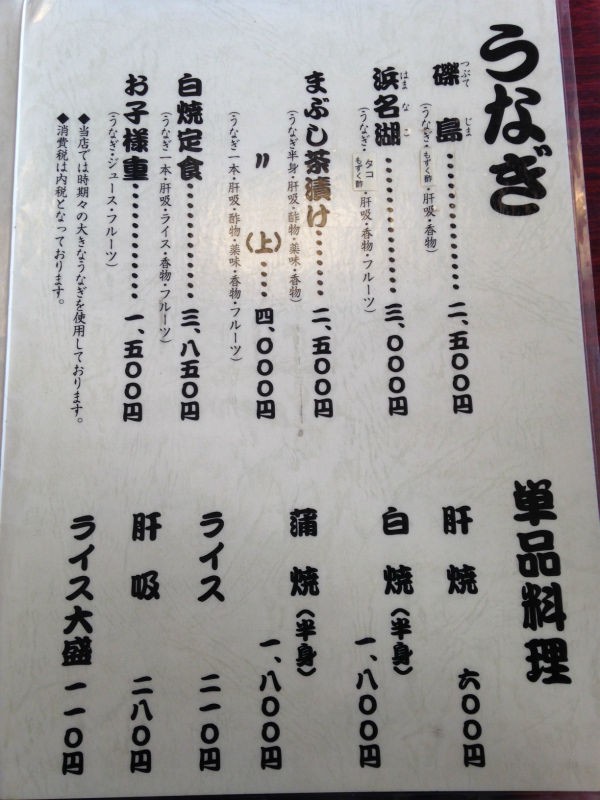 うなぎ
礫島…………二、五〇〇円
つぶて じま
（うなぎ・もずく酢・肝吸・香物）
浜名湖…………三、〇〇〇円
はまなこ
（うなぎ・タコもずく酢・肝吸・香物・フルーツ）
まぶし茶漬け………二、五〇〇円
（うなぎ半身・肝吸・酢物・薬味・香物）
〃（上）……四、〇〇〇円
（うなぎ一本・肝吸・酢物・薬味・香物・フルーツ）
白焼定食…………三、八五〇円
（うなぎ一本・肝吸・ライス・香物・フルーツ）
お子様重…………一、五〇〇円
（うなぎ・ジュース・フルーツ）
◆当店では時期々の大きなうなぎを使用しております。
◆消費税は内税となっております。
単品料理
肝焼 六〇〇円
白焼（半身） 一、八〇〇円
蒲焼（半身） 一、八〇〇円
ライス 二一〇円
肝吸 二八〇円
ライス大盛 一一〇円